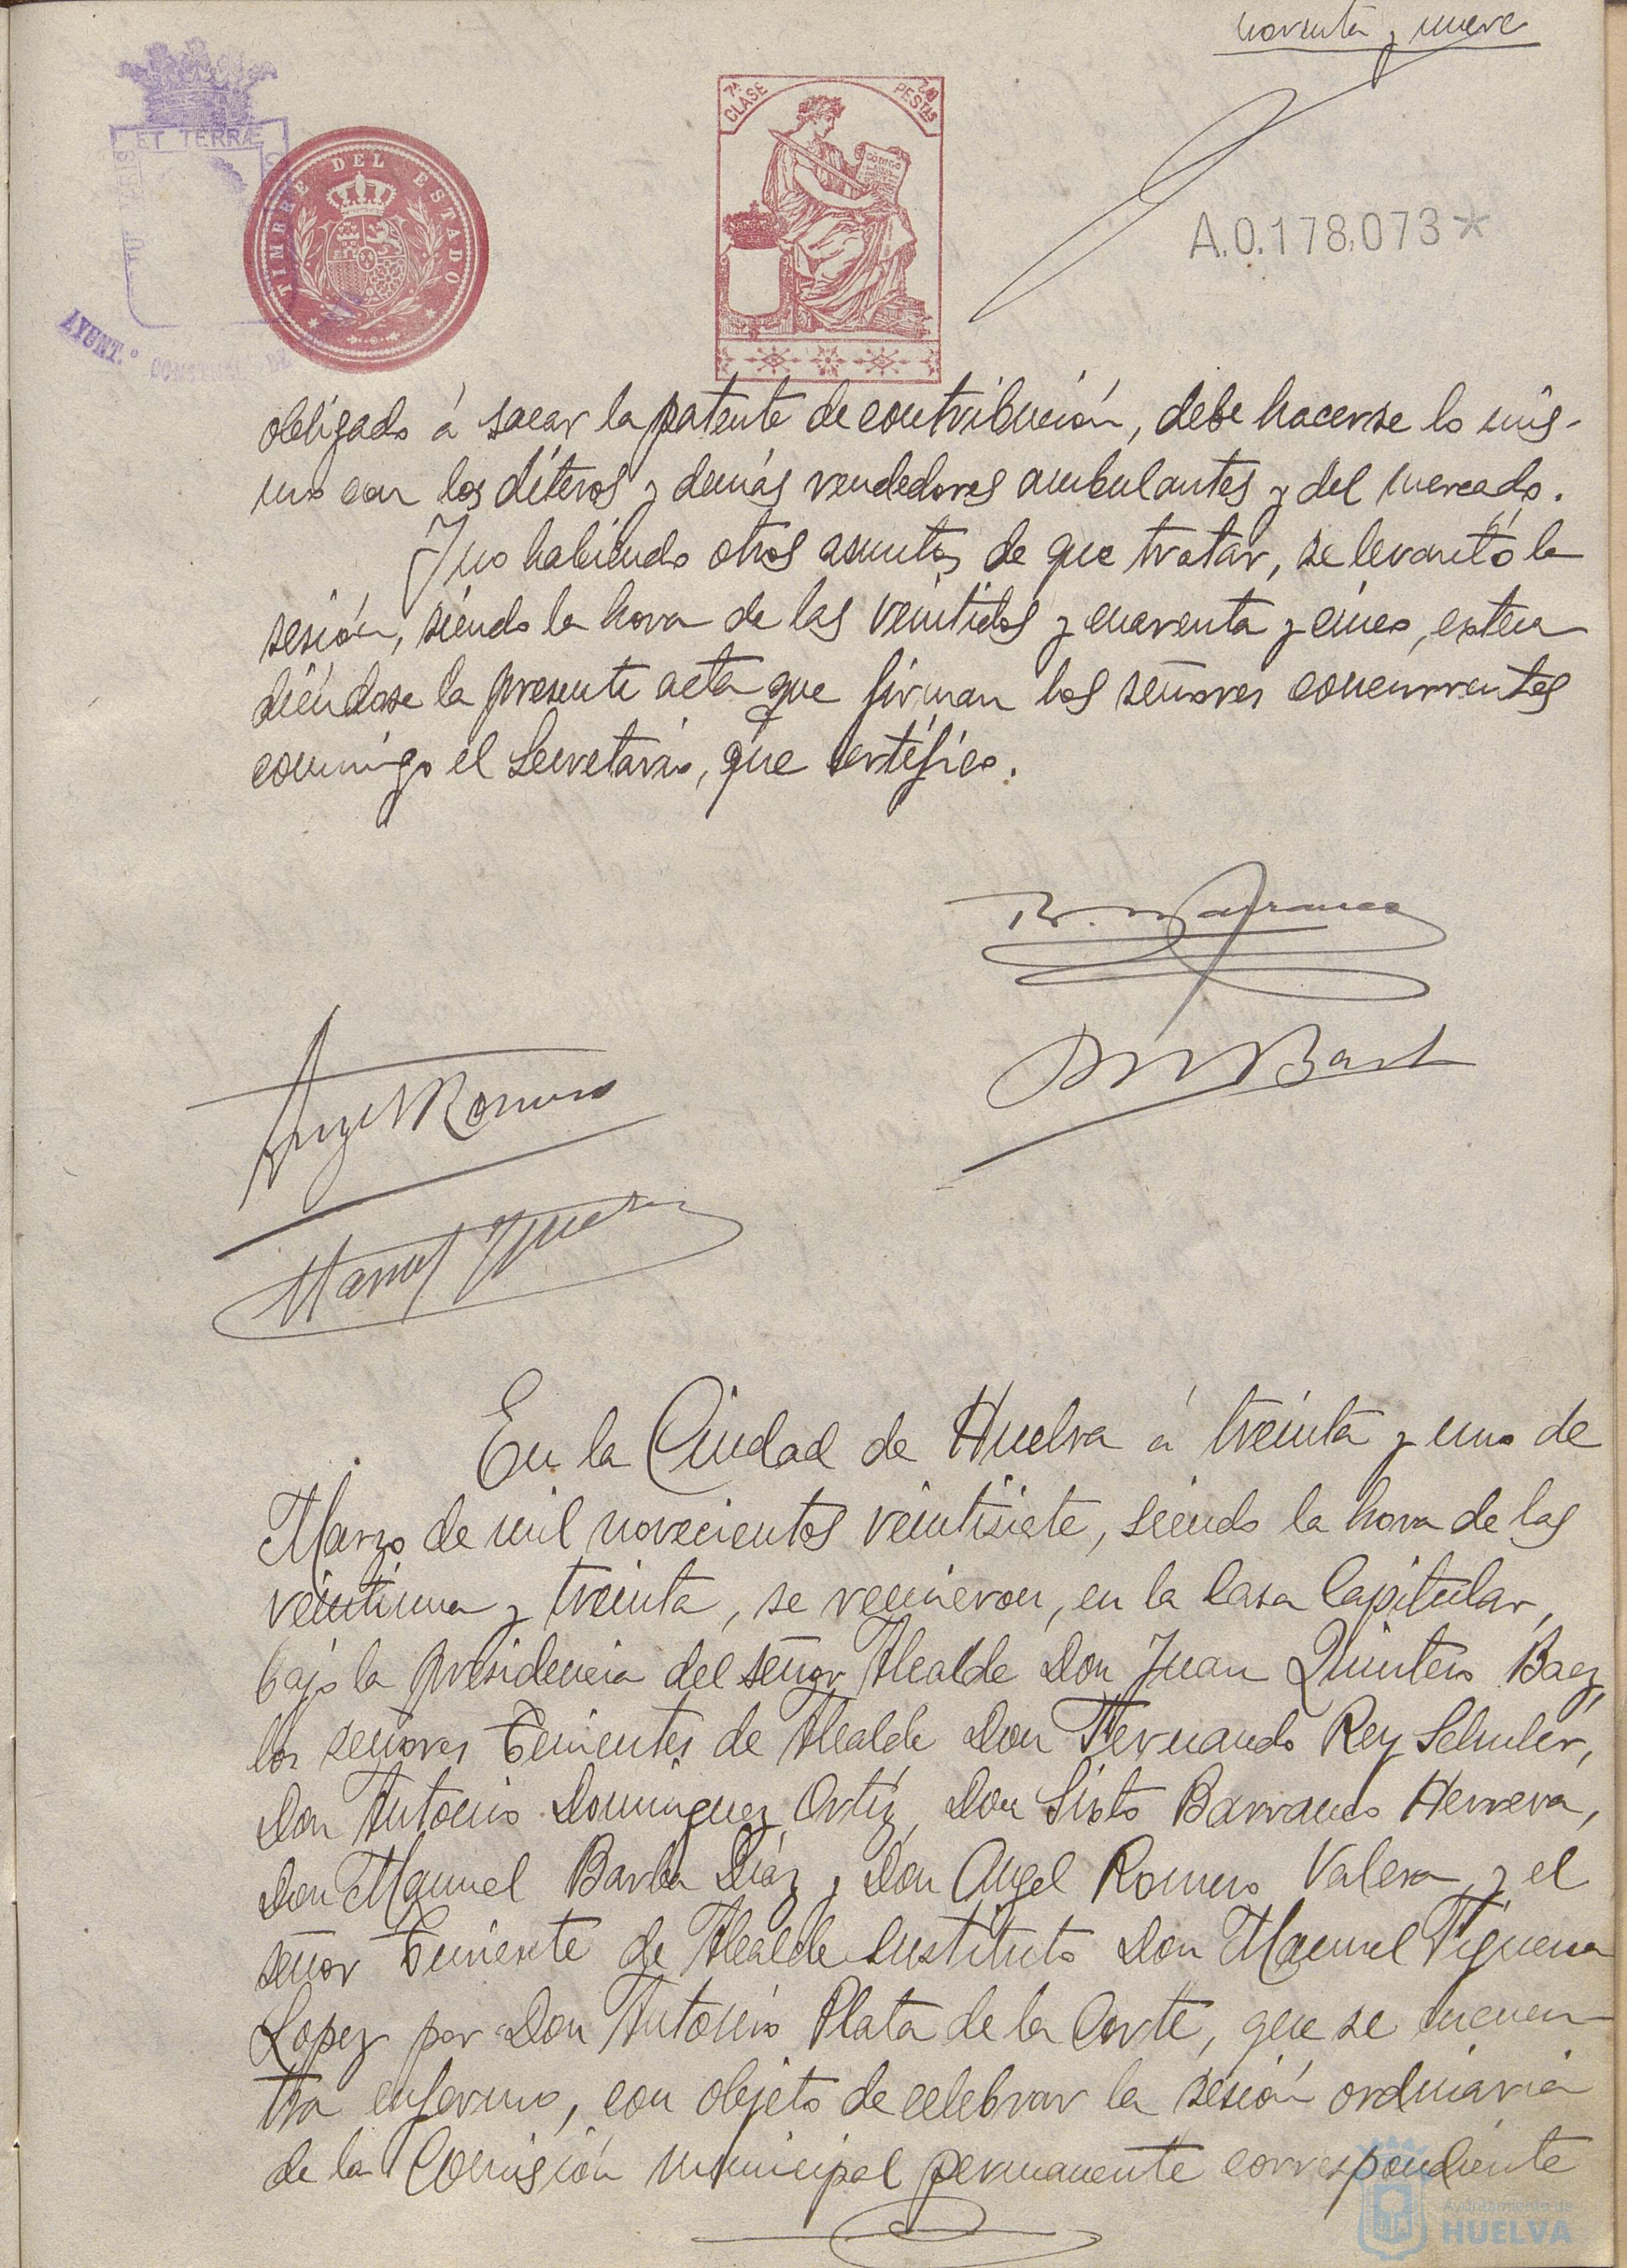 noventa y nueve
ET TERRÆ
AYUNT.º CONST
TIMBRE DEL ESTADO
7ª CLASE
PESTAS
CODIGO
A.0.178.073*
obligado á sacar la patente de contribución, debe hacerse lo mis-
mo con los diteros y demás vendedores ambulantes y del mercado.
Y no habiendo otros asuntos de que tratar, se levantó la
sesión, siendo la hora de las veintidos y cuarenta y cinco, exten
diéndose la presente acta que firman los señores concurrentes
conmigo el Secretario, que certifico.
Angel Romero
Manuel
En la Ciudad de Huelva á treinta y uno de
Marzo de mil novecientos veintisiete, siendo la hora de las
veintiuna y treinta, se reunieron, en la Casa Capitular,
bajo la presidencia del señor Alcalde Don Juan Quintero Baez,
los señores Tenientes de Alcalde Don Fernando Rey Schuler,
Don Antonio Dominguez Ortiz, Don Sixto Barranco Herrera,
Don Manuel Barba Diáz y Don Angel Romero Valera y el
señor Teniente de Alcalde sustituto Don Manuel Figueroa
Lopez por Don Antonio Plata de la Corte, que se encuen-
tra enfermo, con objeto de celebrar la sesión ordinaria
de la Comisión municipal permanente correspondiente
Ayuntamiento de
HUELVA